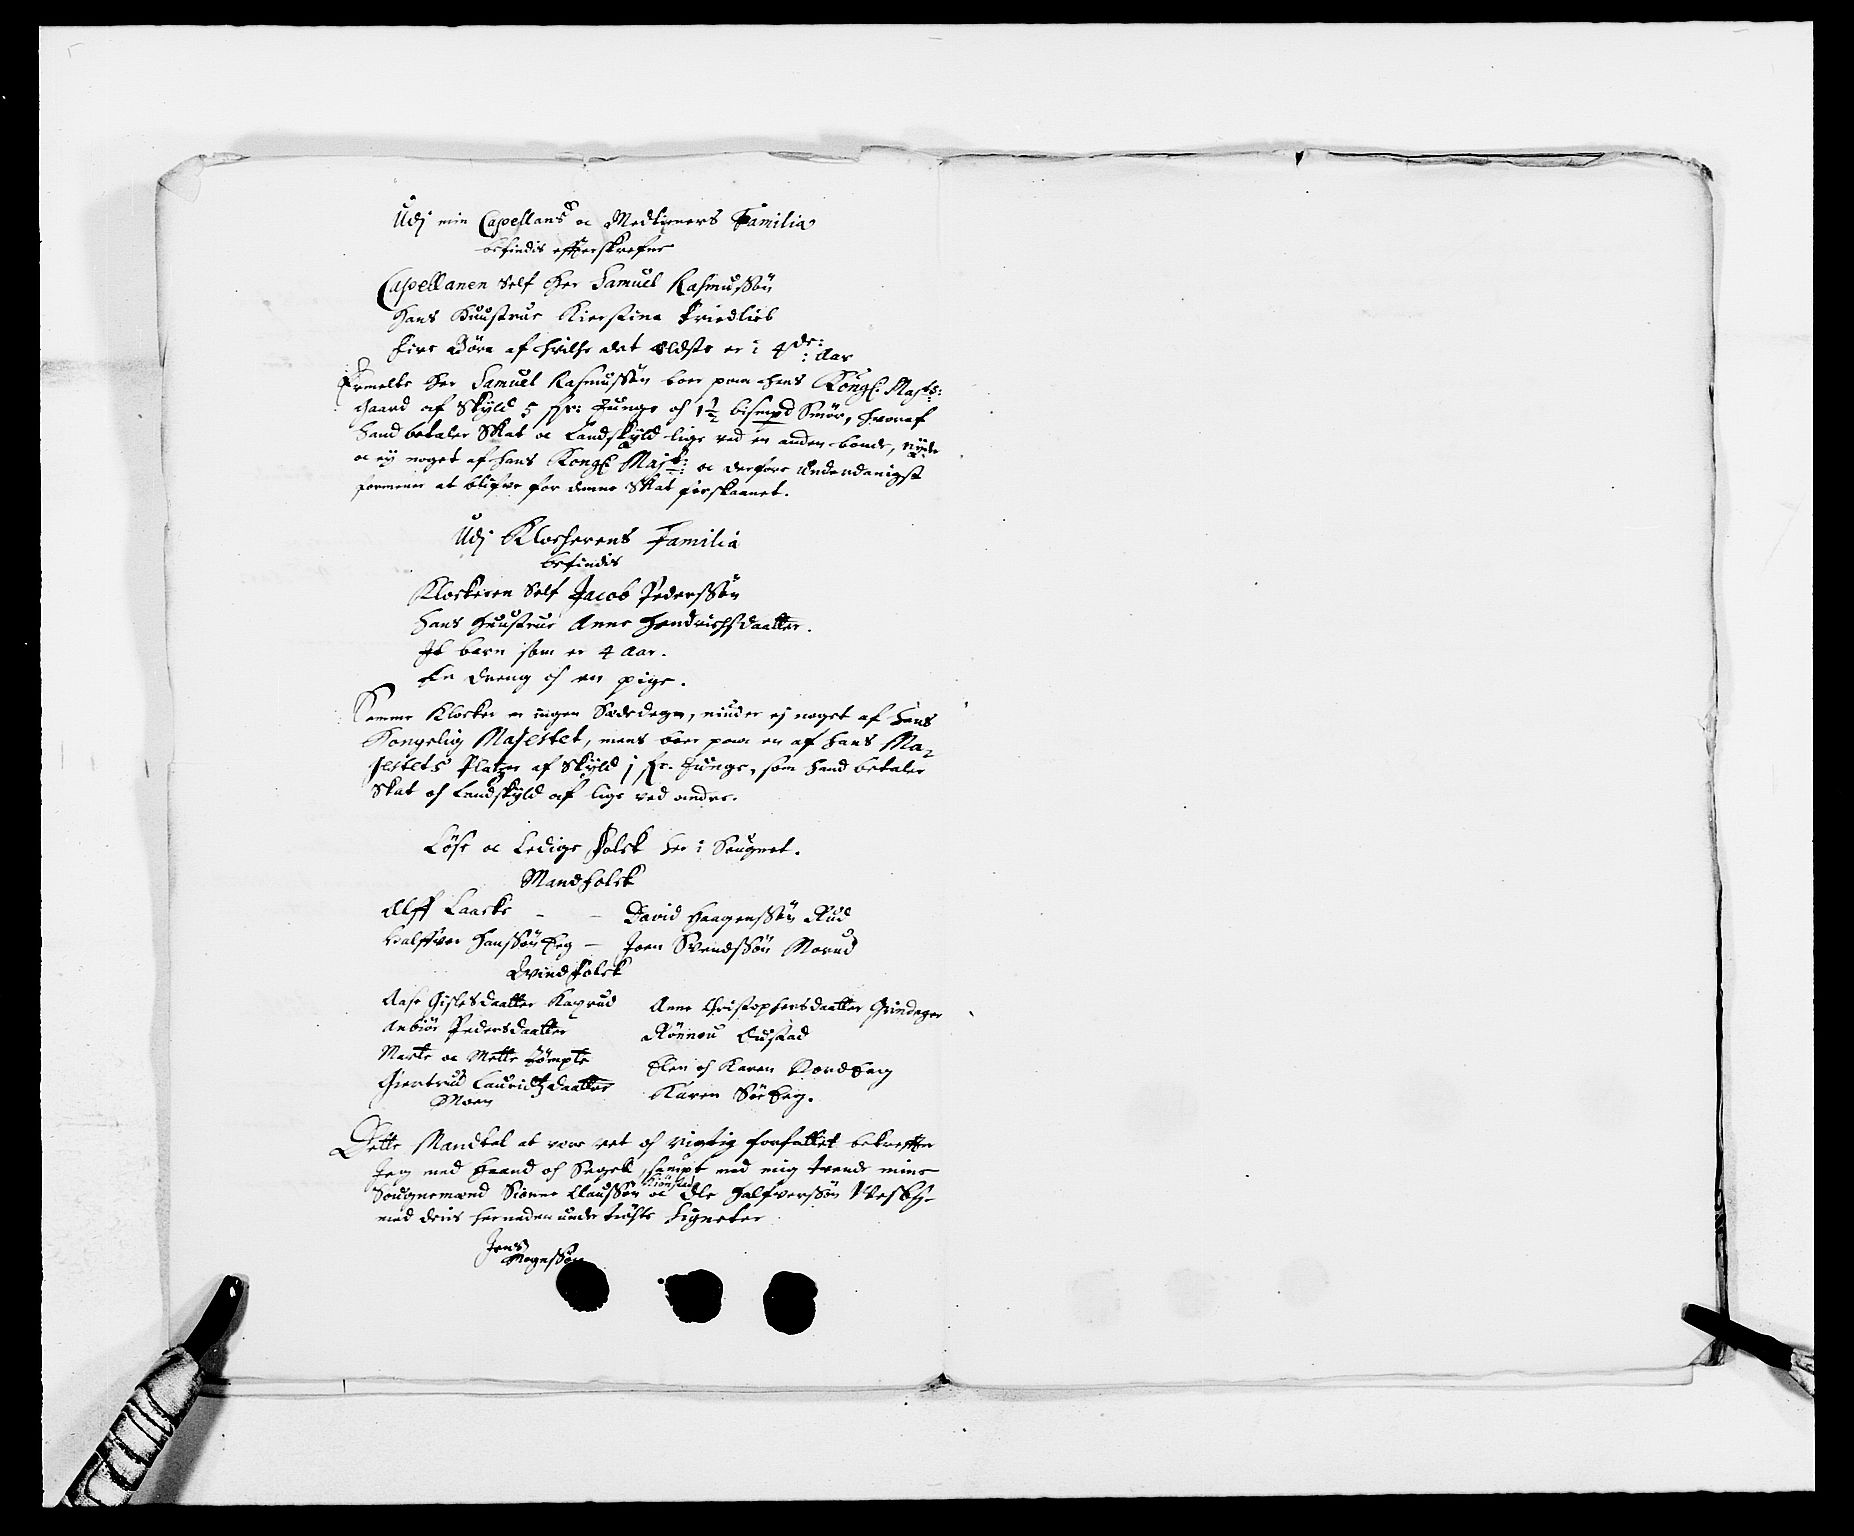 Udj min Capellans oc Medtieners Familia
befindis effterskrefne
Capellanen Self Her Samuel Rasmussøn
Hans Huustrue Kierstine Friedlieb
Fire Børn af hvilke det Eldste er i 4de: Aar
Ermelte Her Samuel Rasmussøn boer paa Hans Kongl: Mayts:
Gaard af Skyld 5 Tunge och 1½ bismpd Smør, hvoraf
hand betaler Skat oc Landskyld lige ved en anden bonde, nyder
oc ej noget af hans Kongl: Mayt: oc derfore Underdanigst
formener at blifve for denne Skat forskaanet.
Udj Klockerens Familia
befindis
Klockeren Self Jacob Pederssøn
Hans Huustrue Anne Hendrichsdaatter.
It barn som er 4 Aar.
En dreng och en pige.
Samme Klocker er ingen Sædedegn, niuder ej noget af Hans
Kongelig Majestet, mens boer paa en af Hans Ma-
jestets Platzer af Skyld j Tunge, som hand betaler
Skat och Landskyld af lige ved andre.
Løse oc Ledige Folck her i Sougnet.
Mandfolck
Alff Laacke - - David Haagenssøn Rud
Halffvor Hanssøn Eeg - Joen Svendssøn Morud
Qvindfolck
Aase Gislesdaatter Kaxrud Anne Christophersdaatter Grindager
Anbiør Pedersdaatter Rønnou
Marte oc Mette Elen och Karen Nordbeÿ
Giertrud Lauridtzdaatter Karen Sørbeÿ.
Moen
Dette Mandtal at vere ret och rigtig forfattet bekreffter
Jeg med Haand och Segell, sampt med mig trende mine
Sougnemænd Siønne Claussøn oc Ole Halfverssøn Vestby
med deris herneden under trøgte Signeter
Jens
Mogenssøn